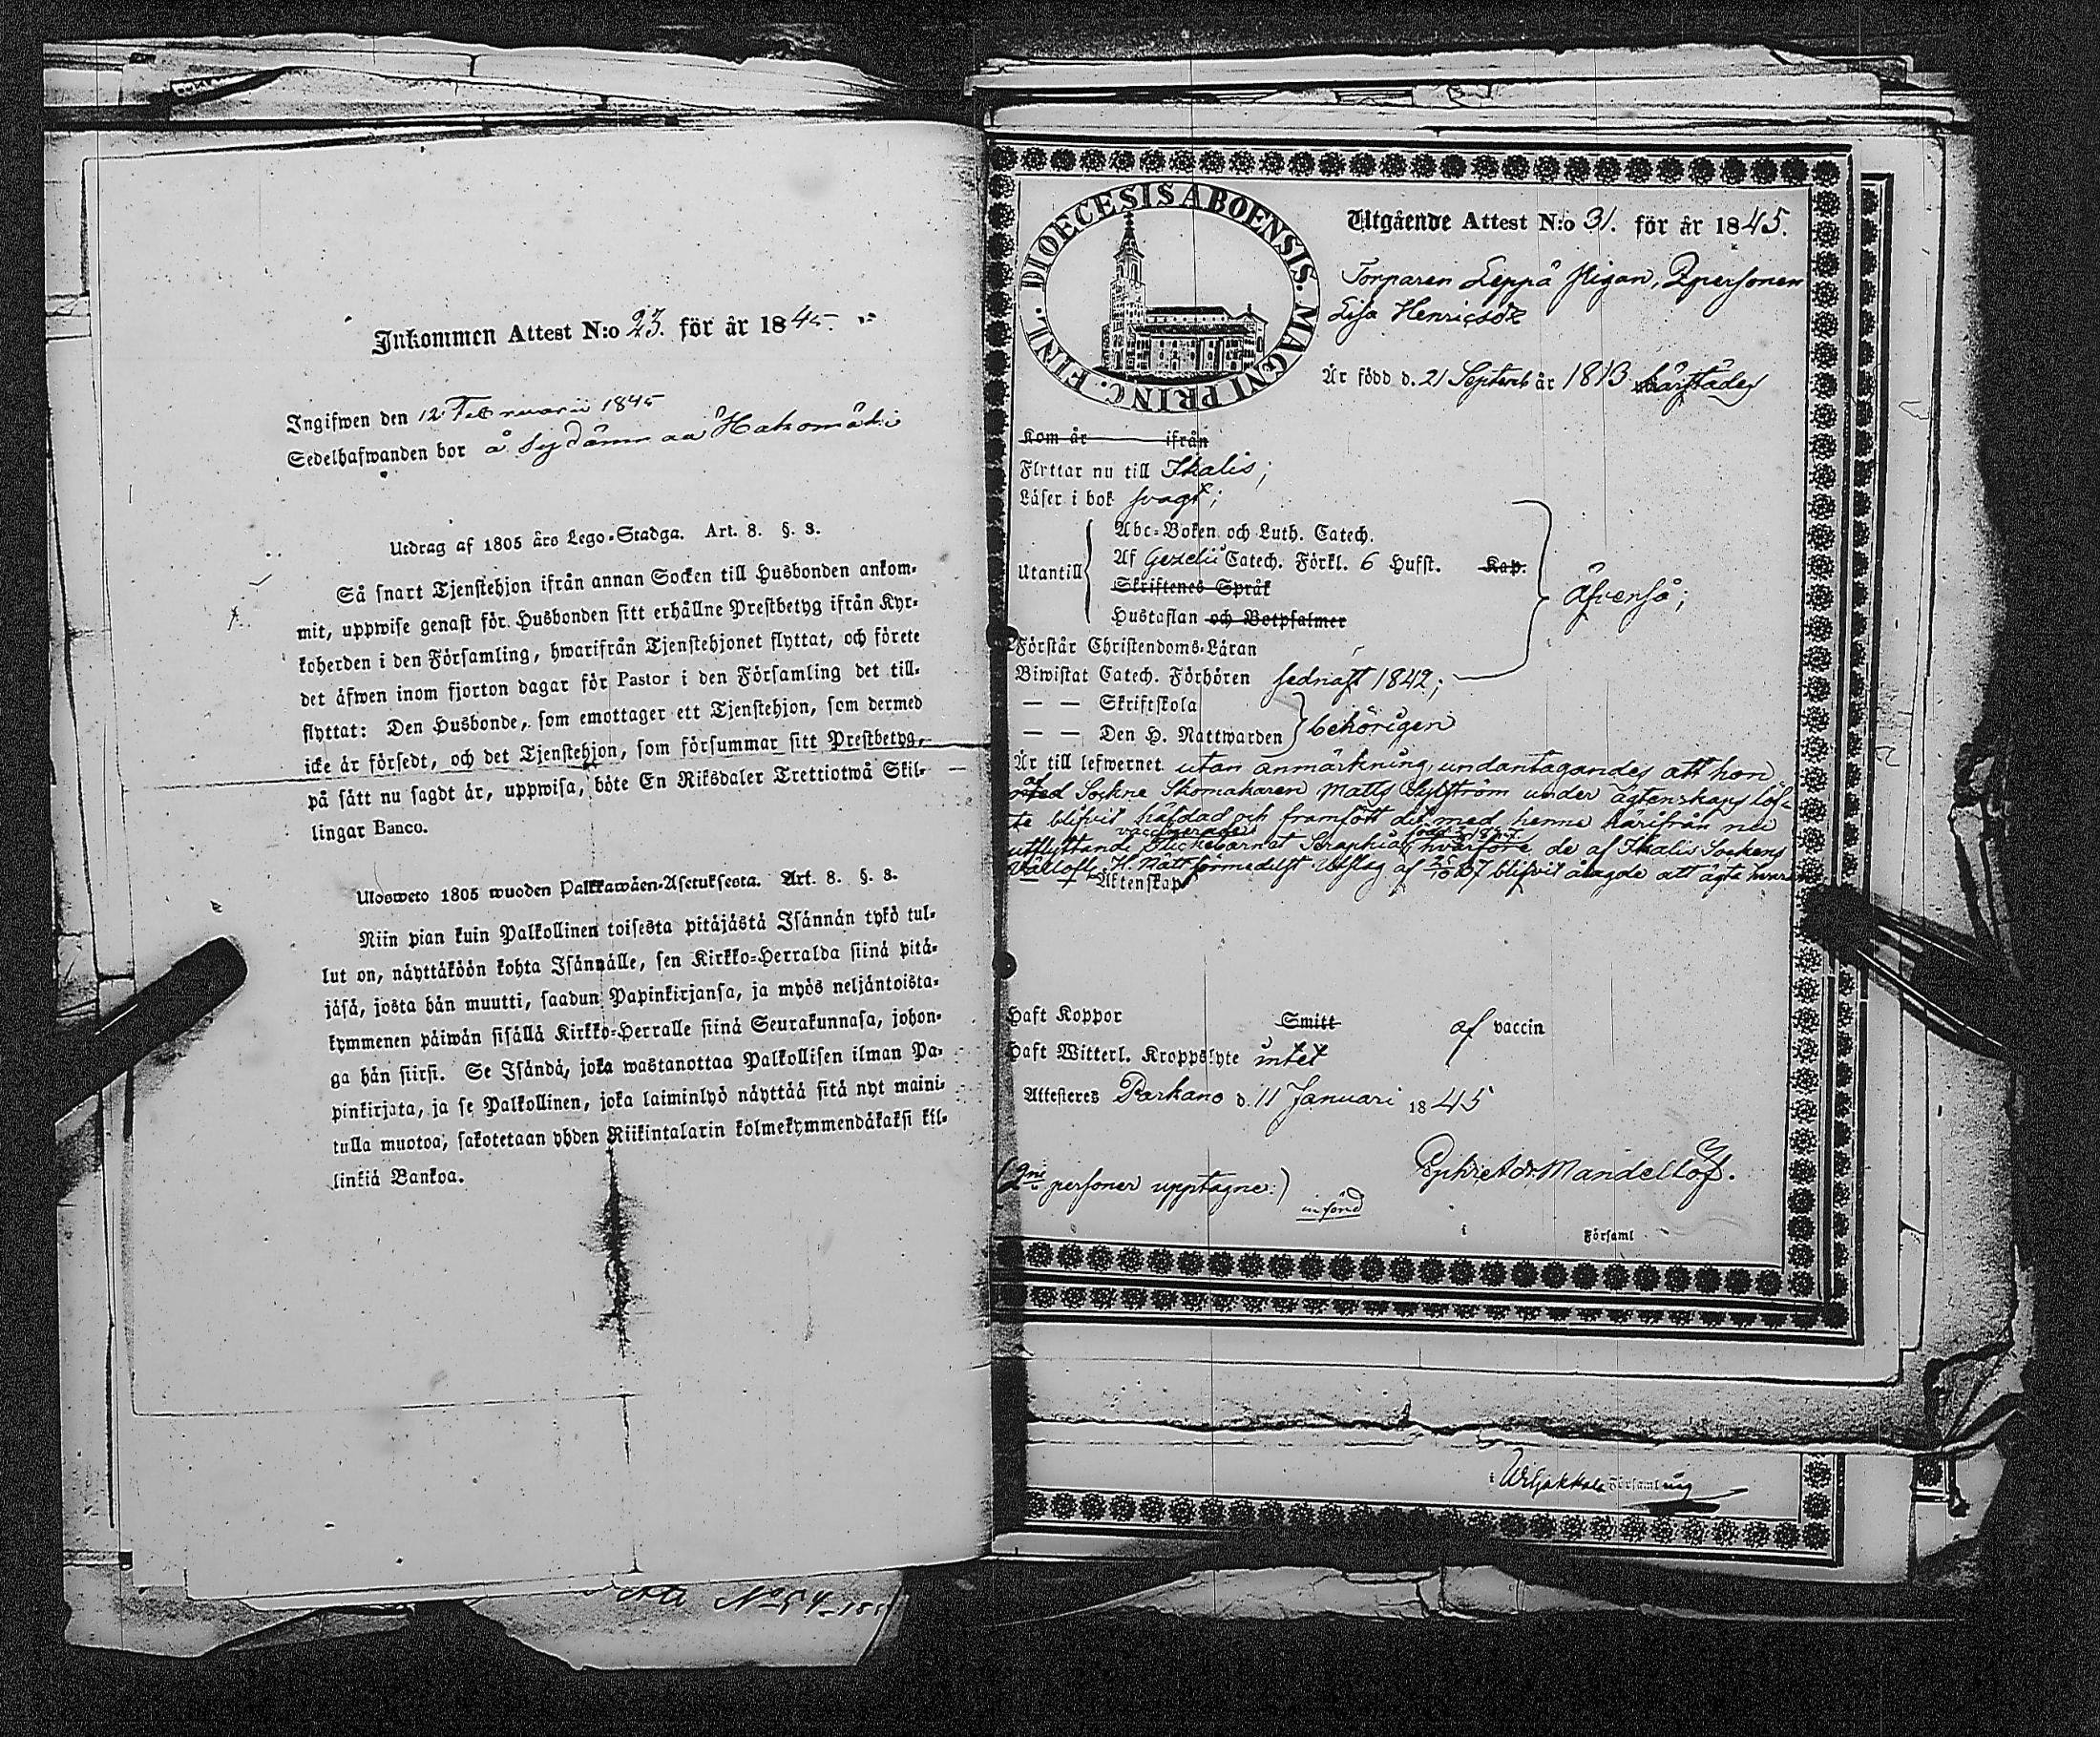 Inkommen Attest N:o 23. för år 1845.
Ingifwen den 12 Februarii 1845
Sedelhafwanden bor å Sydänmaa Hakomäki
Utdrag af 1805 års Lego-Stadga. Art. 8. §. 3.
Så snart Tjenstehjon ifrån annan Socken till Husbonden ankom-
mit, uppwise genast för Husbonden sitt erhållne Prestbetyg ifrån Kyr-
koherden i den Församling, hwarifrån Tjenstehjonet flyttat, och förete
det äfwen inom fjorton dagar för Pastor i den Församling det till-
flyttat: Den Husbonde, som emottager ett Tjenstehjon, som dermed
icke är försedt, och det Tjenstehjon, som försummar sitt Prestbetyg,
på sätt nu sagdt är, uppwisa, böte En Riksdaler Trettiotwå Skil-
lingar Banco.
Ulosweto 1805 wuoden Palkkawäen-Asetuksesta. Art. 8. §. 3.
Niin pian kuin Palkollinen toisesta pitäjästä Isännän tykö tul-
lut on, näyttäköön kohta Isännälle, sen Kirkko-Herralda siinä pitä-
jäsä, josta hän muutti, saadun Papinkirjansa, ja myös neljäntoista-
kymmenen päiwän sisällä Kirkko-Herralle siinä Seurakunnasa, johon-
ga hän siirsi. Se Isändä, joka wastanottaa Palkollisen ilman Pa-
pinkirjata, ja se Palkollinen, joka laiminlyö näyttää sitä nyt maini-
tulla muotoa, sakotetaan yhden Riikintalarin kolmekymmendäkaksi kil-
linkiä Bankoa.
N:o 54
DIOECESIS ABOENSIS. MAGNI PRINC. FINL.
Utgående Attest N:o 31. för år 1845.
Torparen Leppä Pigan, Qpersonen
Lisa Henricsdr
Är född d. 21 Septemb år 1813 härstädes
Kom år ifrån
Flyttar nu till Ikalis;
Läser i bok svagt;
Utantill
Abc-Boken och Luth. Catech.
Af Gezelii Catech. Förkl. 6 Hufst. Kap.
Skriftenes Språk
Hustaflan och Botpsalmer
äfvenså;
Förstår Christendoms-Läran
Biwistat Catech. Förhören sednast 1842;
— — Skriftskola
— — Den H. Nattwarden behörigen
Är till lefwernet utan anmärkning, undantagandes att hon
af Sockne Skomakaren Matts Sjöström under ägtenskaps löf-
te blifvit häfdad och framfödt det med henne härifrån nu
utflyttande vaccinerade flickebarnet Seraphia, hvarföre de af Ikalis Sockens
förmedelst Utslag af blifvit ålagde att ägta hvaran
— — Äktenskap
Haft Koppor Smitt af vaccin
Haft Witterl. Kroppslyte intet
Attesteres Parkano d. 11 Januari 1845
Mandellöf.
(2ne personer upptagne:)
införd
i Församl
i Wiljakkala Församling